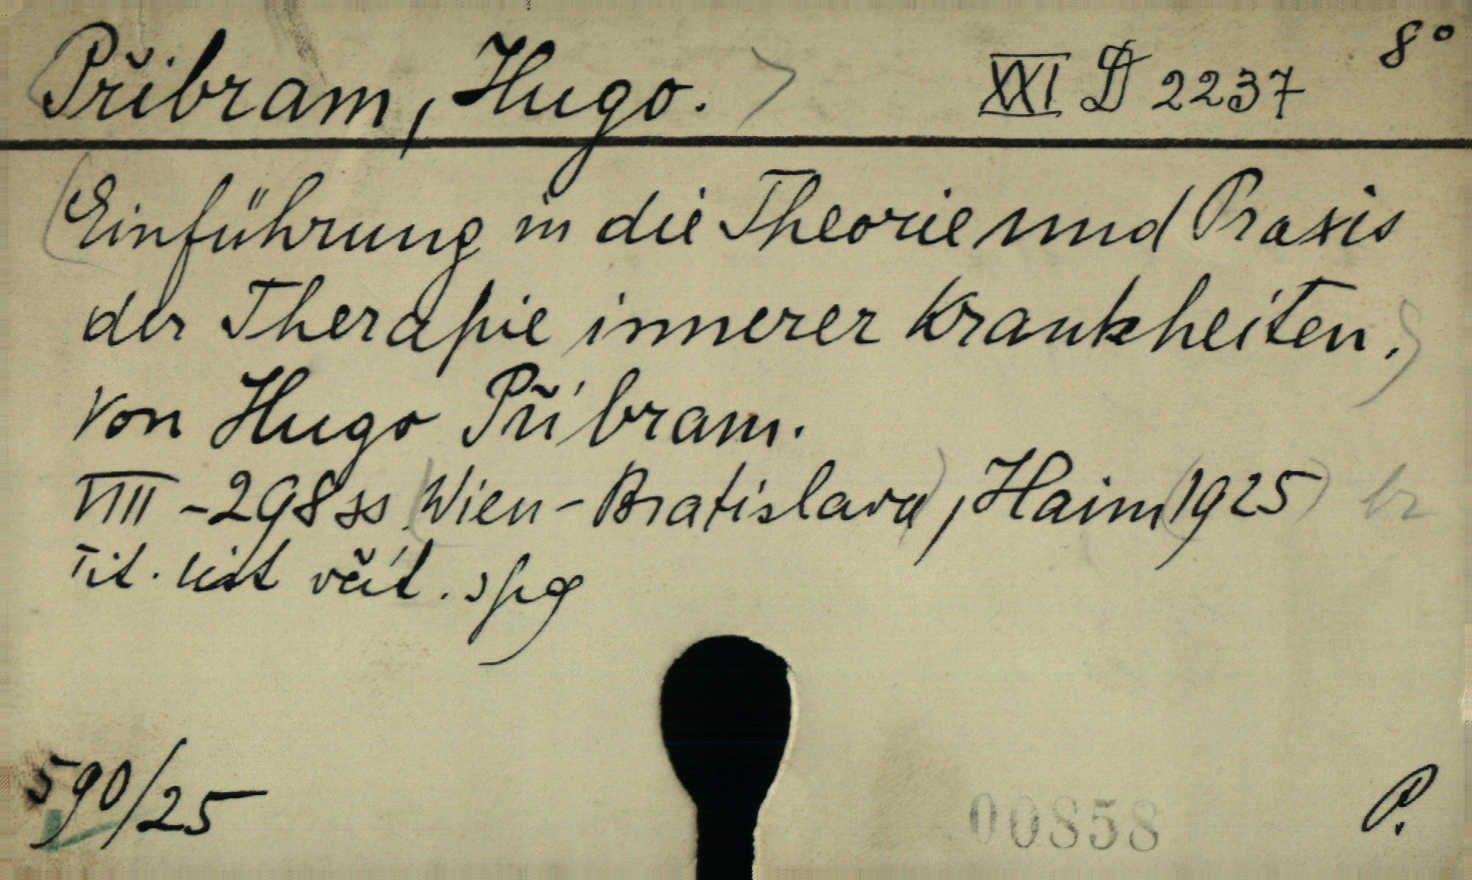 Přibram, Hugo. XXI D 2237 8°
(Einführung in die Theorie und Praxis
der Therapie innerer Krankheiten.)
Von Hugo Přibram.
VIII - 298 ss (Wien - Bratislava), Haim (1925) br
Tit. list včít. spg
590/25 00858 P.